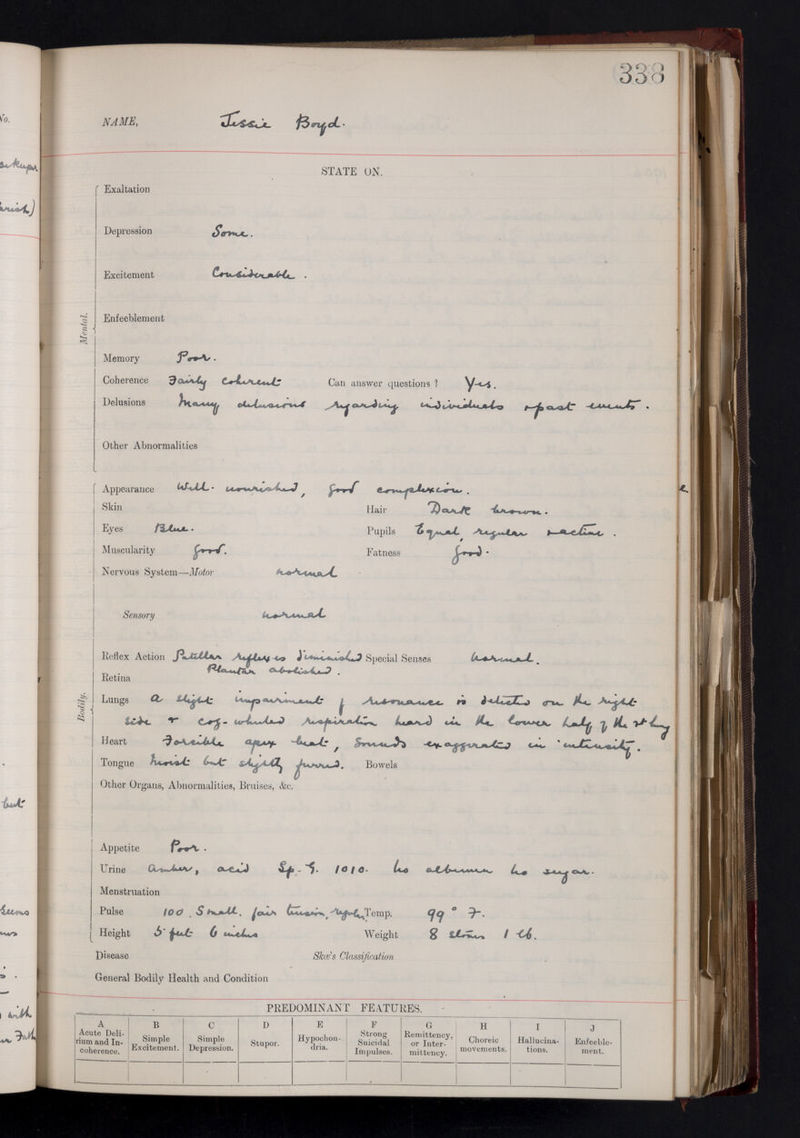 338
NAME, Jessie Boyd.
STATE ON.
Mental.
Exaltation
Depression Some.
Excitement Considerable.
Enfeeblement
Memory Poor.
Coherence Fairly coherent Can answer questions ? Yes.
Delusions Many delusions regarding individuals & past events.
Other Abnormalities
Bodily.
Appearance Well-nourished, good complexion.
Skin Hair Dark brown.
Eyes Blue. Pupils Equal, regular & active.
Muscularity Good. Fatness Good.
Nervous System—Motor normal
Sensory normal
Reflex Action Patellar reflexes diminished Special Senses normal.
Plantar abolished.
Retina
Lungs A slight impairment of resonance is detected on the right
side & cog-wheeled respiration heard in the lower half of the rt lung
Heart Forcible apex beat, Sounds exaggerated in intensity.
Tongue Moist but slightly furred. Bowels
Other Organs, Abnormalities, Bruises, &c.
Appetite Poor.
Urine Amber, acid Sp. G. 1010. No albumen No sugar.
Menstruation
Pulse 100. Small, fair tension, regular Temp. 99° F.
Height 5 feet 6 inches Weight 8 stones 1 lb.
Disease Skae's Classification
General Bodily Health and Condition
PREDOMINANT FEATURES.
A B C D E F G H I J
Acute Delirium and Incoherence. Simple Excitement. Simple Depression. Stupor. Hypochondria. Strong Suicidal Impulses. Remittency, or Intermittency. Choreic movements. Hallucinations. Enfeeblement.